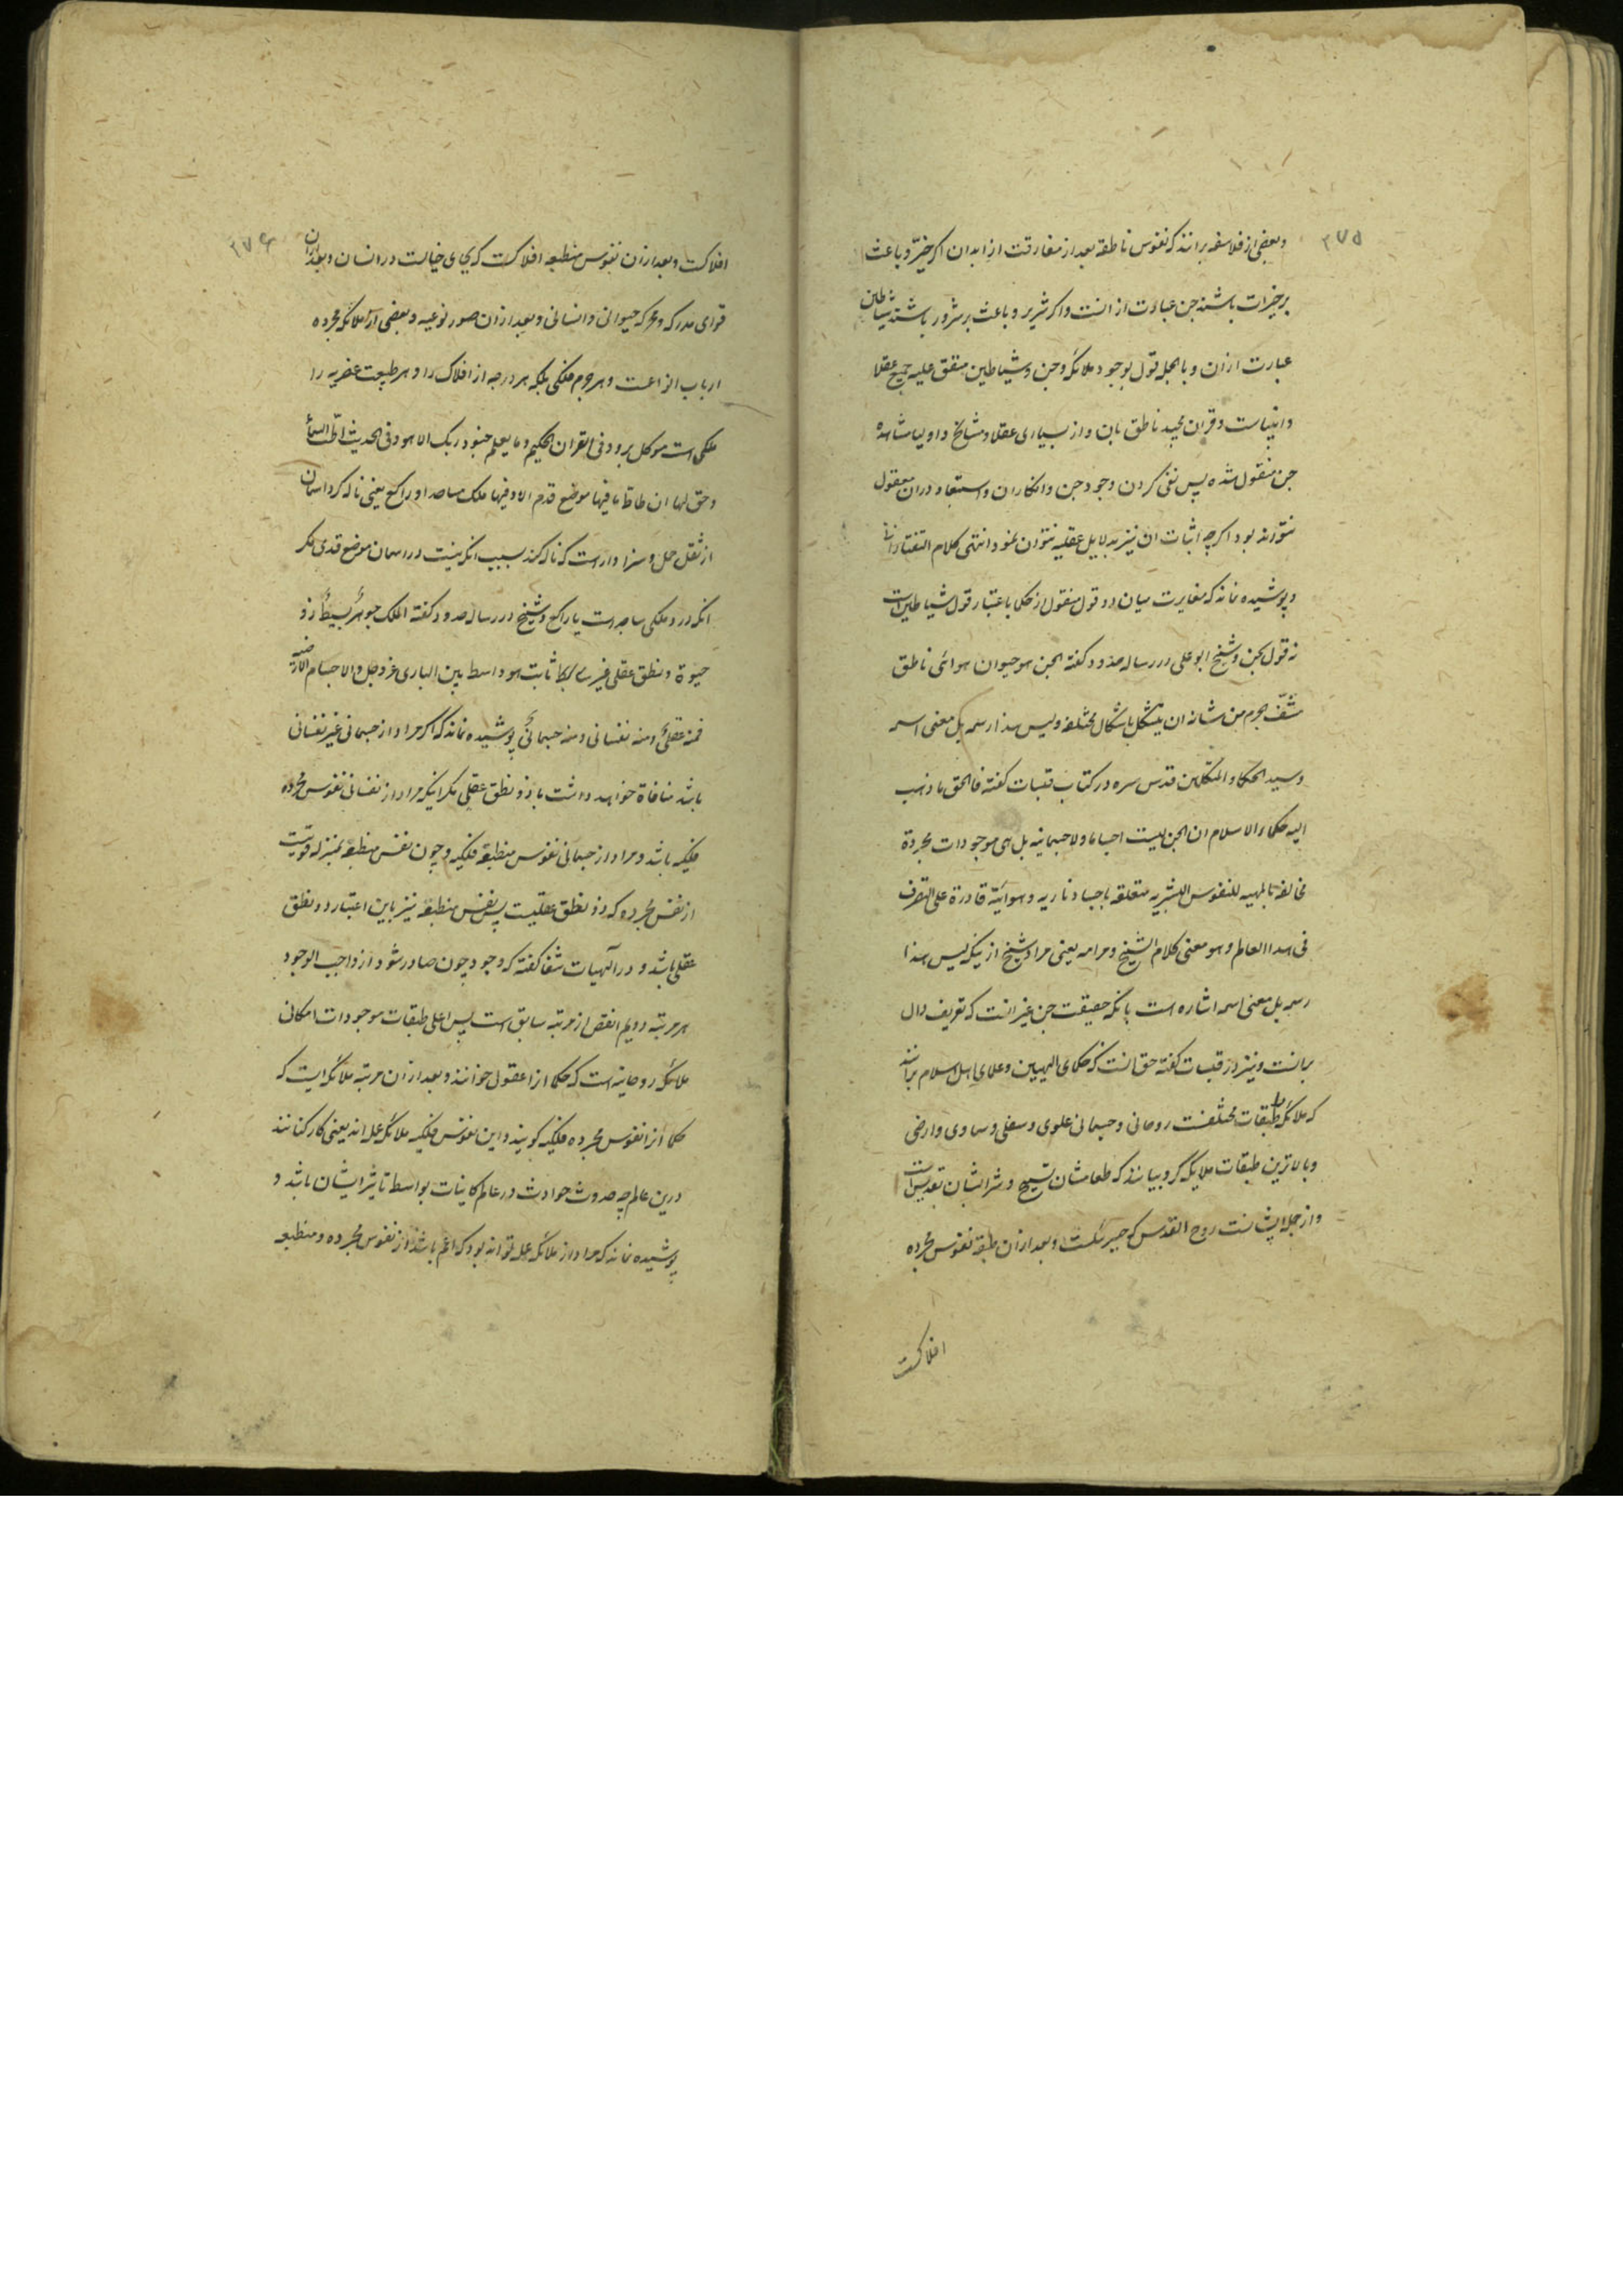 ۲۷۵
وبعضی از فلاسفه برانند که نفوس ناطقه بعد از مفارقت از ابدان اکر خیّر و باعث
بر خیرات باشند جن عبارت از انست واکر شریر و باعث بر شرور باشند شیاطین
عبارت ازان و بالجمله قول بوجود ملائکه وجن وشیاطین متفق علیه جمیع عقلا
وانبیاست وقران مجید ناطق بان واز بسیاری عقلا ومشایخ واولیا مشاهده
جن منقول شده پس نفی کردن وجود جن وانکار ان واستبعاد دران معقول
نتواند بود اکرچه اثبات ان نیز بدلایل عقلیه نتوان نمود انتهی کلام التفتازانی
وپوشیده نماند که مغایرت میان دو قول منقول از حکما باعتبار قول شیاطین است
نه قول بجن وشیخ ابو علی در رساله حدود کفته الجن هو حیوان هوائی ناطق
مشفّ جرم من شانه ان یتشکل باشکال مختلفه ولیس هذا رسمه بل معنی اسمه
وسید الحکما والمتکلمین قدس سره در کتاب قبسات کفته فالحق ما ذهب
الیه حکماء الاسلام ان الجن لیست اجساما ولا جسمانیه بل هی موجودات مجردة
مخالفة بالمهیه للنفوس البشریه متعلقه باجساد ناریه وهوائیّة قادرة علی التصرف
فی هذا العالم وهو معنی کلام الشیخ ومرامه یعنی مراد شیخ از نیکه لیس هذا
رسمه بل معنی اسمه اشاره است بانکه حقیقت جن غیر انست که تعریف دال
برانست ونیز در قبسات کفته حق انست که حکمای الهیین وعلمای اهل اسلام برانند
که ملائکه را طبقات مختلفست روحانی وجسمانی علوی وسفلی وسماوی وارضی
وبالاترین طبقات ملایکه کروبیانند که طعامشان تسبیح وشرابشان تقدیس است
واز جمله ایشانست روح القدس که جبرئیلست وبعد ازان طبقه نفوس مجرده
افلاکست
۲۷۶
افلاکست وبعد ازان نفوس منطبعه افلاکست که بجای خیالست در انسان وبعد ازان
قوای مدرکه ومحرکه حیوانی وانسانی وبعد ازان صور نوعیه وبعضی از ملائکه مجرده
ارباب انواعست وهر جرم فلکی بلکه هر درجه از افلاک را وهر طبیعت عنصریه را
ملکی است موکل برو وفی القران الحکیم وما یعلم جنود ربک الا هو وفی الحدیث اطّت السمأ
وحق لها ان طاطّ ما فیها موضع قدم الا وفیها ملک ساجد او راکع یعنی ناله کرد اسمان
از ثقل حمل وسزاوار است که ناله کند بسبب انکه نیست در اسمان موضع قدمی مکر
انکه درو ملکی ساجد است یا راکع وشیخ در رساله حدود کفته الملک جوهرٌ بسیطٌ ذو
حیوة ونطق عقلی غیر مائت هو واسط بین الباری عز وجل والاجسام الارضیه
فمنه عقلیٌ ومنه نفسانی ومنه جسمانیٌ پوشیده نماند که اکر مراد از جسمانی غیر نفسانی
باشد منافاة خواهد داشت با ذو نطق عقلی مکر اینکه مراد از نفسانی نفوس مجرده
فلکیه باشد ومراد از جسمانی نفوس منطبعه فلکیه وچون نفس منطبعه بمنزله قوتیست
از نفس مجرده که ذو نطق عقلیست پس نفس منطبعه نیز باین اعتبار ذو نطق
عقلی باشد و در الهیات شفا کفته که وجود چون صادر شود از واجب الوجود
هر مرتبه دویم انقص از مرتبه سابق است پس اعلی طبقات موجودات امکانی
ملائکه روحانیه است که حکما انرا عقول خوانند وبعد ازان مرتبه ملائکه ایست که
حکما انرا نفوس مجرده فلکیه کویند واین نفوس فلکیه ملائکه عمله اند یعنی کارکنانند
درین عالم چه حدوث حوادث در عالم کاینات بواسطه تاثیر ایشان باشد و
پوشیده نماند که مراد از ملائکه عمله تواند بود که اعم باشد از نفوس مجرده ومنطبعه